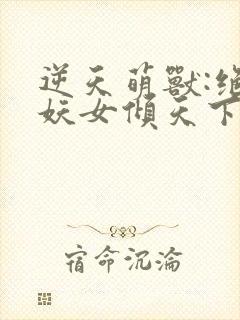 逆天萌獸:絕
妖女傾天下
宿命沉淪